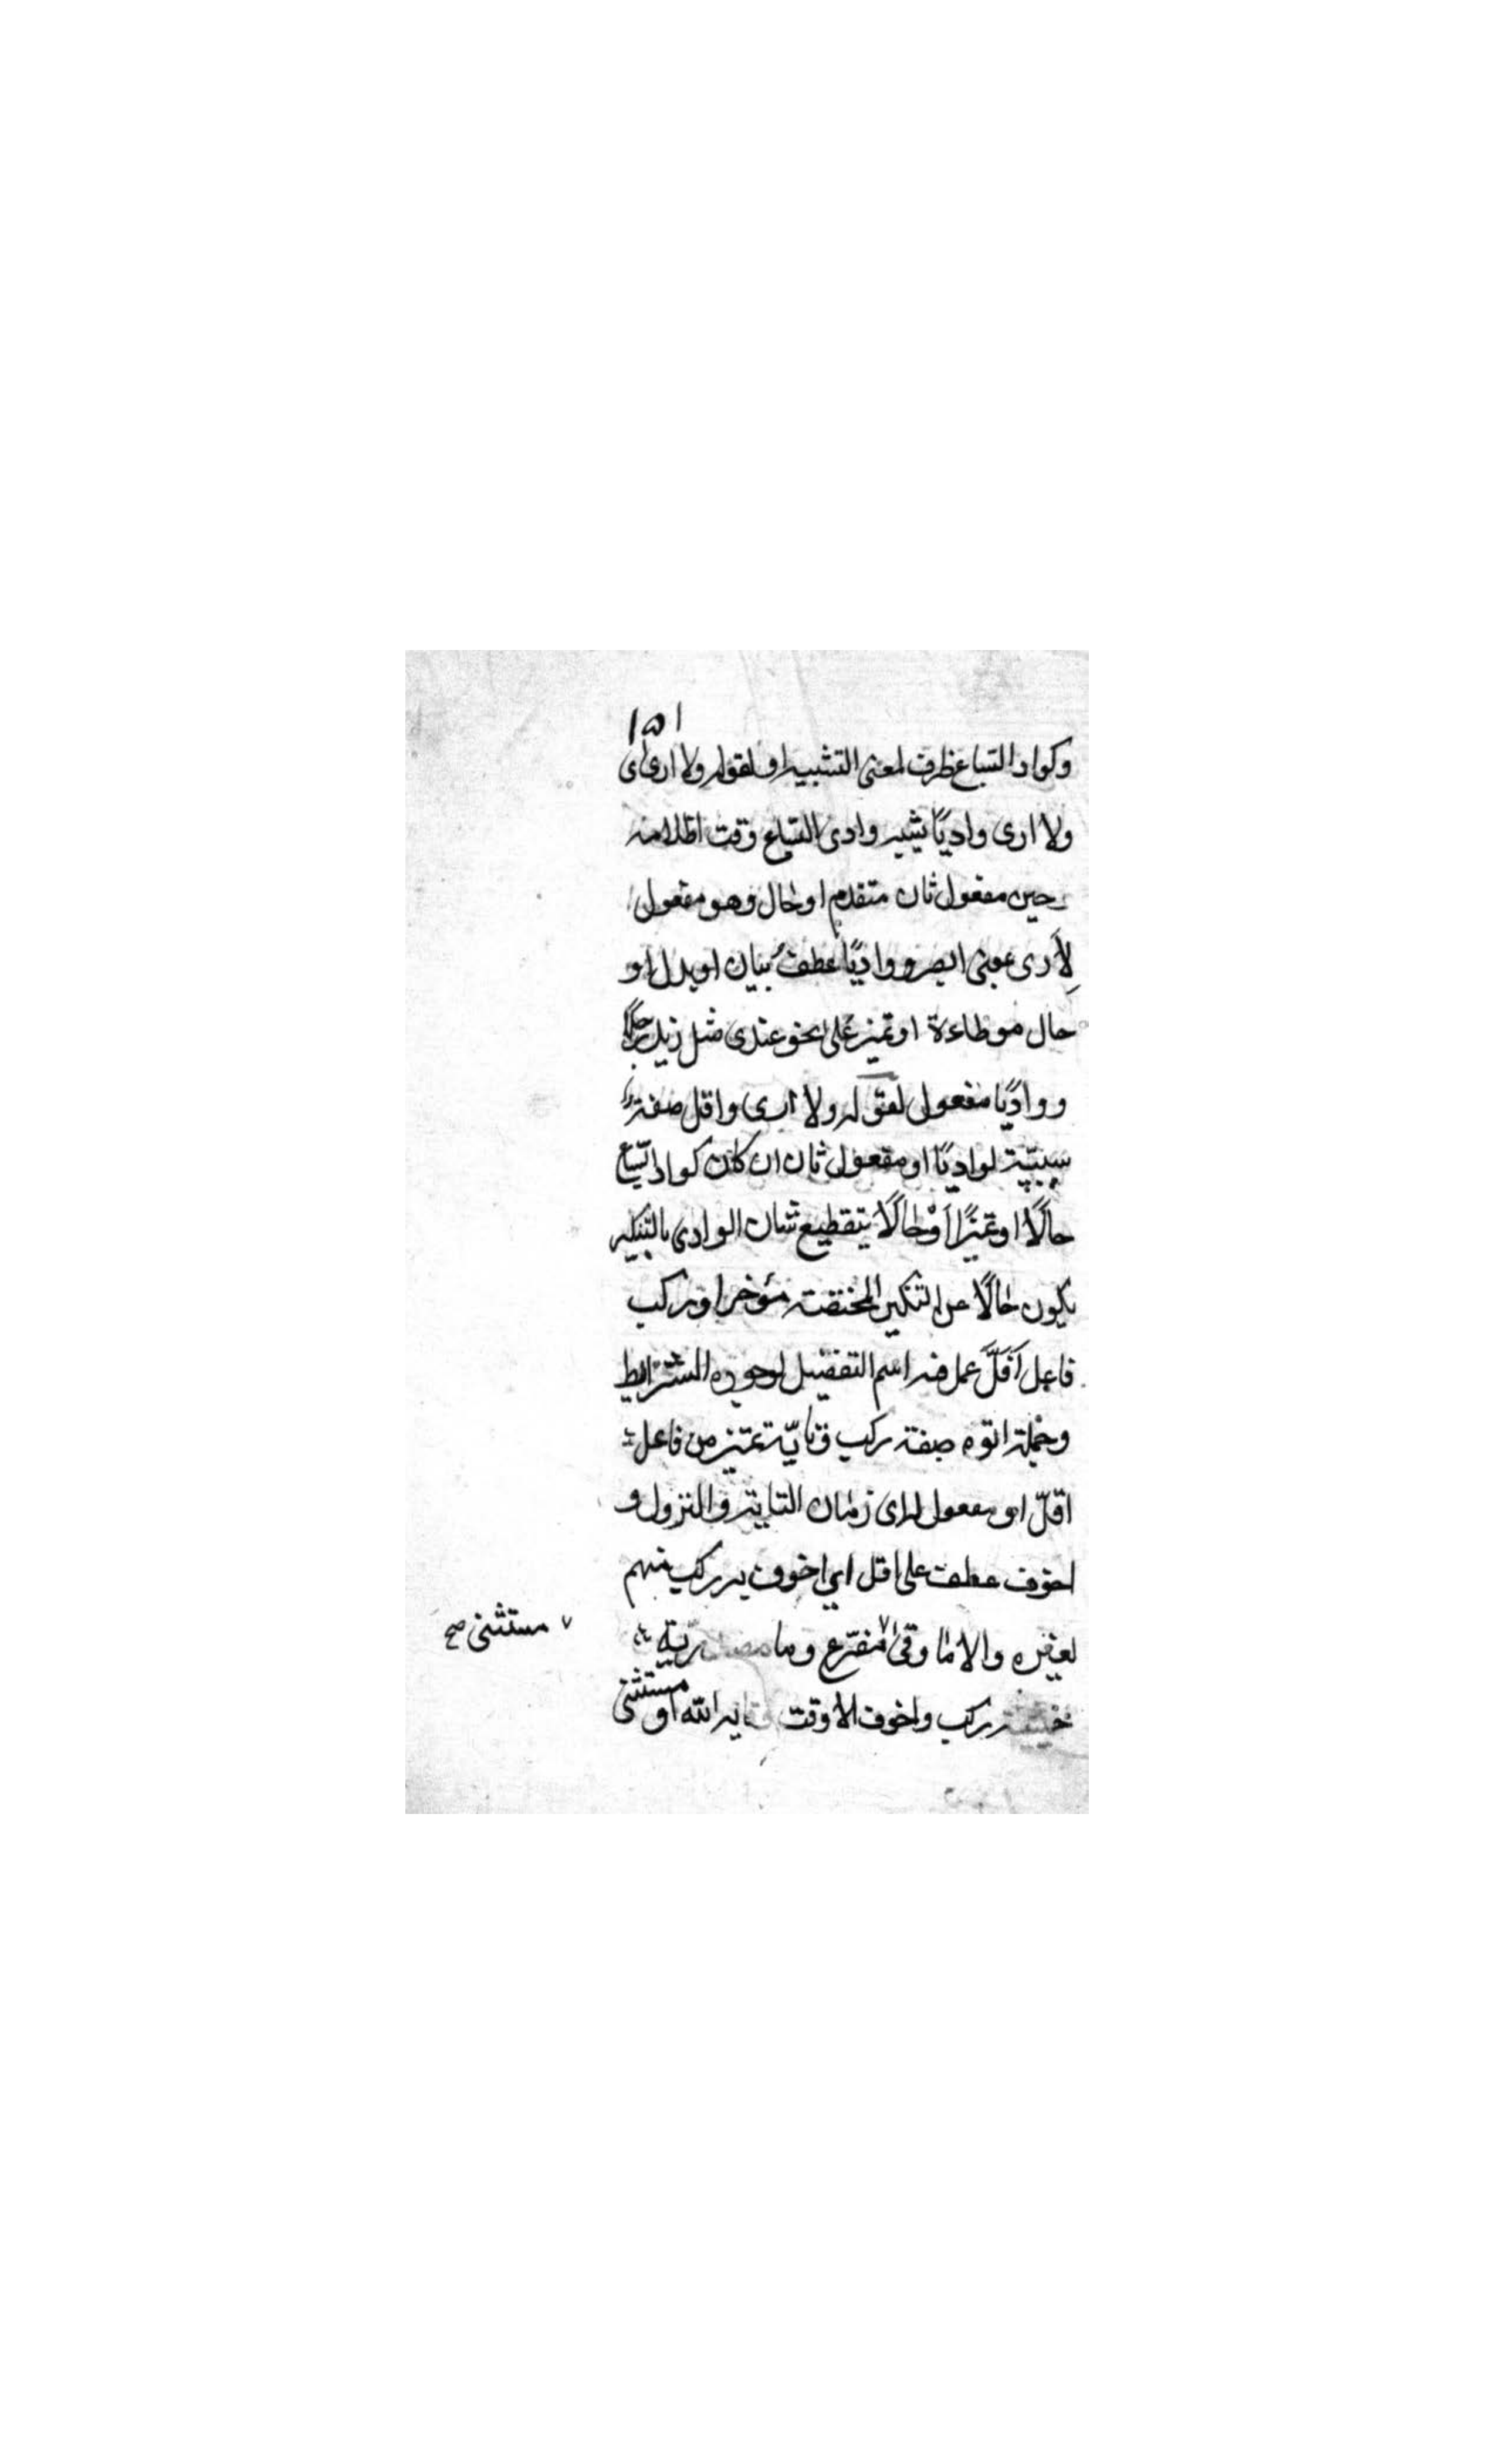 ١٥١
وكواد السباع ظرف لمعنى التشبيه او لقوله ولا ارى اى
ولا ارى واديًا يشبه وادى السباع وقت اظلامه
حين مفعول ثان متقدم او حال وهو مفعول
لِأَرى بمعنى ابصر وواديًا عطف بيان او بدل او
حال موطاءة او تميز على نحو عندى مثل زيد رجلًا
وواديًا مفعول لقوله ولا ارى واقل صفة
سببيّة لواديًا او مفعول ثان ان كان كواد السباع
حالًا او تميزًا أو حالًا بتقطيع شان الوادى بالتنكير
يكون حالًا عن التنكير المختصة مؤخرا وركب
فاعل أَقَلَّ عمل فيه اسم التفضيل لوجود الشرايط
وجملة اتوه صفة ركب وتايّة تميز من فاعل
اقلّ او مفعول له اى زمان التاية والنزول و
اخوف عطف على اقل اي اخوف به ركب منهم
لغيره والا ما وقى ٧ مفرّغ وما مصدريّة
٧ مستثنى صح
ركب واخوف الا وقت وقاية الله او مستثنى